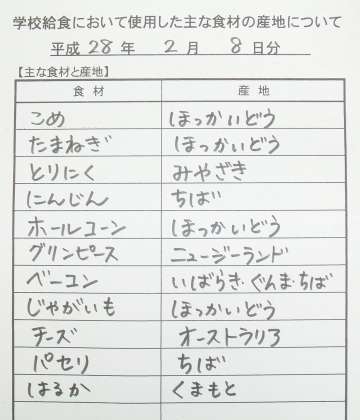 学校給食において使用した主な食材の産地について
平成 28 年 2 月 8 日分
【主な食材と産地】
食 材 産 地
こめ ほっかいどう
たまねぎ ほっかいどう
とりにく みやざき
にんじん ちば
ホールコーン ほっかいどう
グリンピース ニュージーランド
ベーコン いばらき・ぐんま・ちば
じゃがいも ほっかいどう
チーズ オーストラリア
パセリ ちば
はるか くまもと